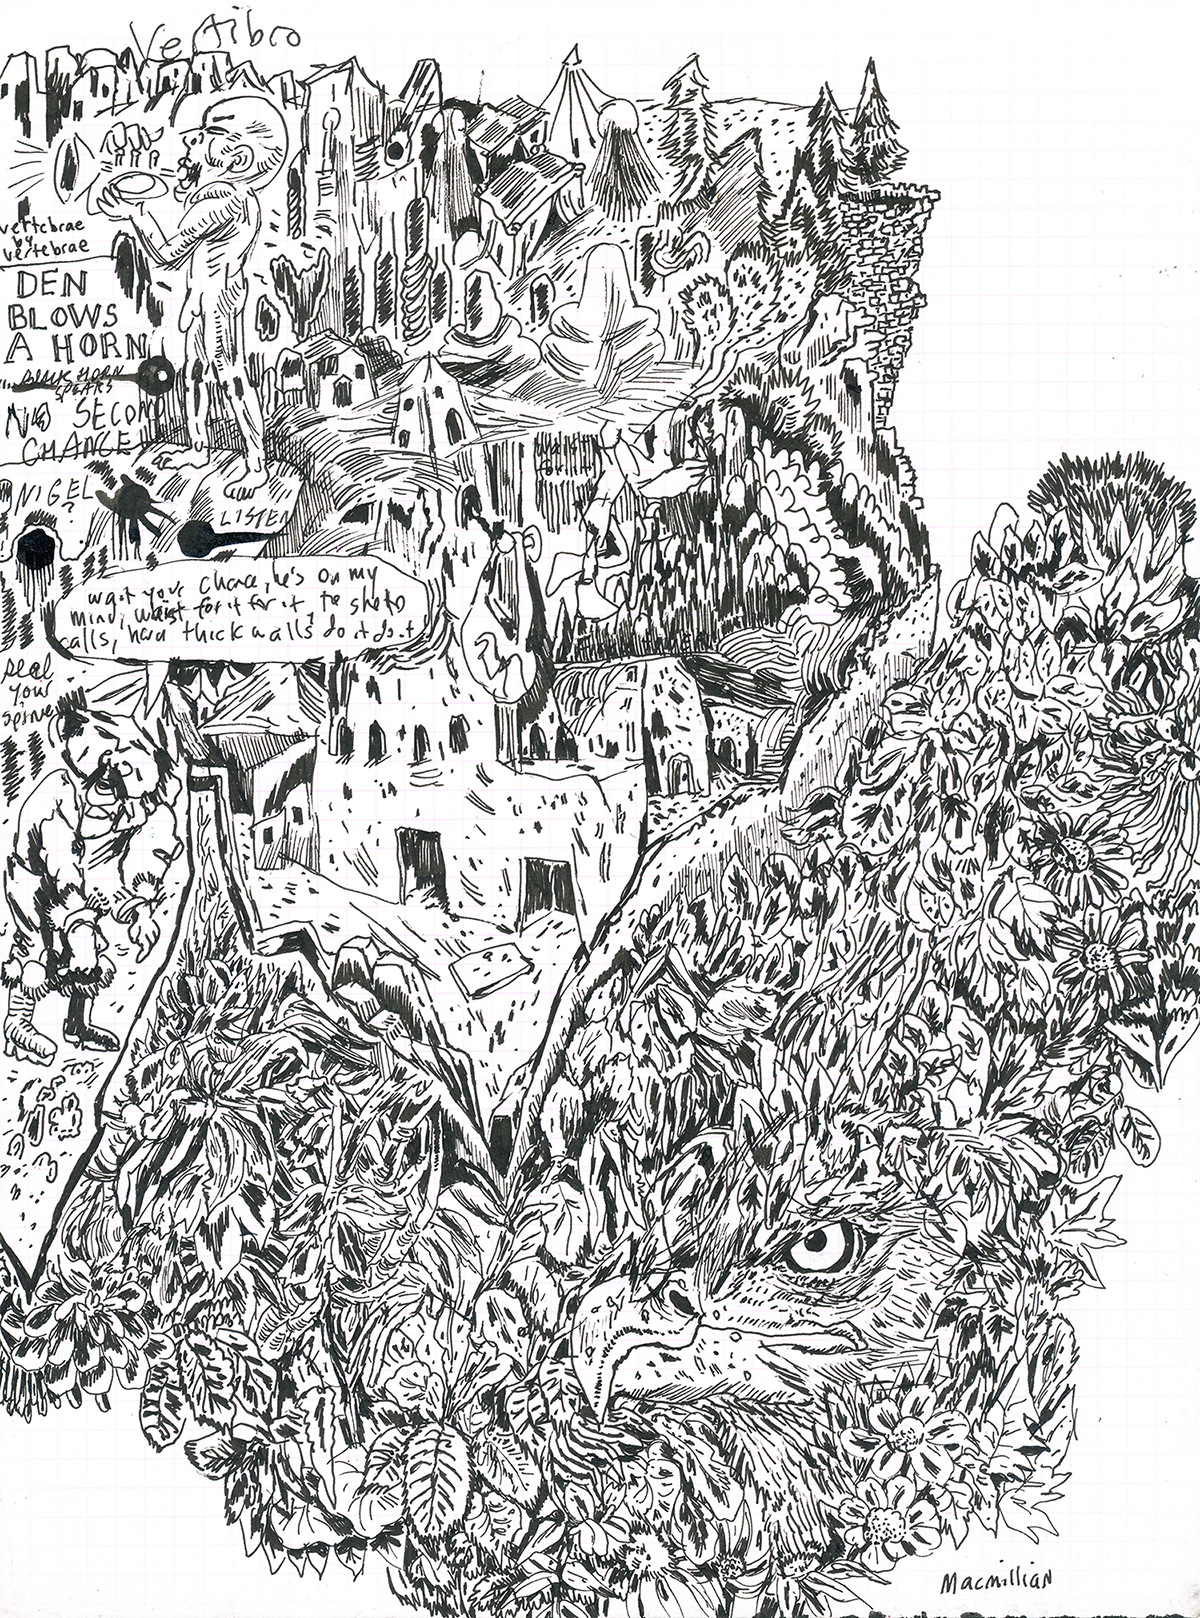 Vertibro
vertebrae
by
vertebrae
DEN
BLOWS
A HORN
BLACK HORN
SPEARS
NO SECOND
CHANCE
NIGEL
LISTEN
wait for it
wait your chance, he's on my
mind, wait for it for it, to
calls, hard thick walls do it do it
seal
your
spine
Macmillian